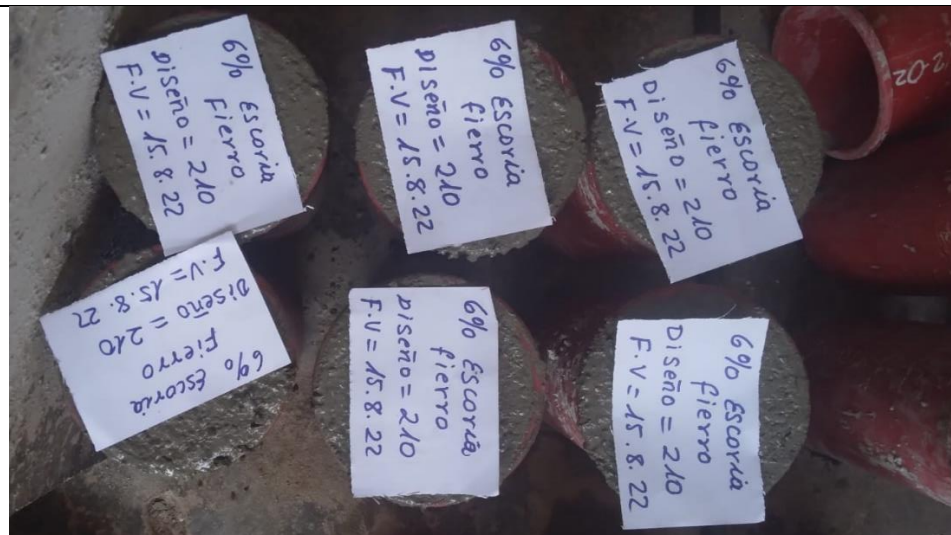 6% Escoria
Fierro
Diseño = 210
F.V = 15.8.22
6% Escoria
fierro
Diseño = 210
F.V = 15.8.22
6% Escoria
fierro
Diseño = 210
F.V = 15.8.22
6% Escoria
Fierro
Diseño = 210
F.V = 15.8.22
6% Escoria
fierro
Diseño = 210
F.V = 15.8.22
6% Escoria
fierro
Diseño = 210
F.V = 15.8.22
2.02